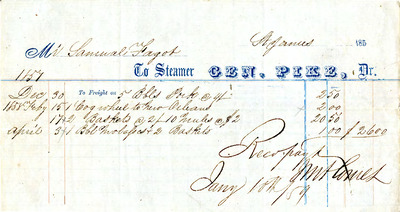 Mr Samuall Fagot St James 185
To Steamer GEN. PIKE, Dr.
1857
Dec 30 To Freight on 5 Bbls Pork @ 4/ 2 50
1858 Feby 15 1 Cog wheel to New Orleans 2 00
17 2 Baskets @ 2/ 10 @ $2 20 50
April 3 1 Bbl Molasses & 2 Baskets 1 00 $ 26 00
Rec'd payt
Jany 10th / 59